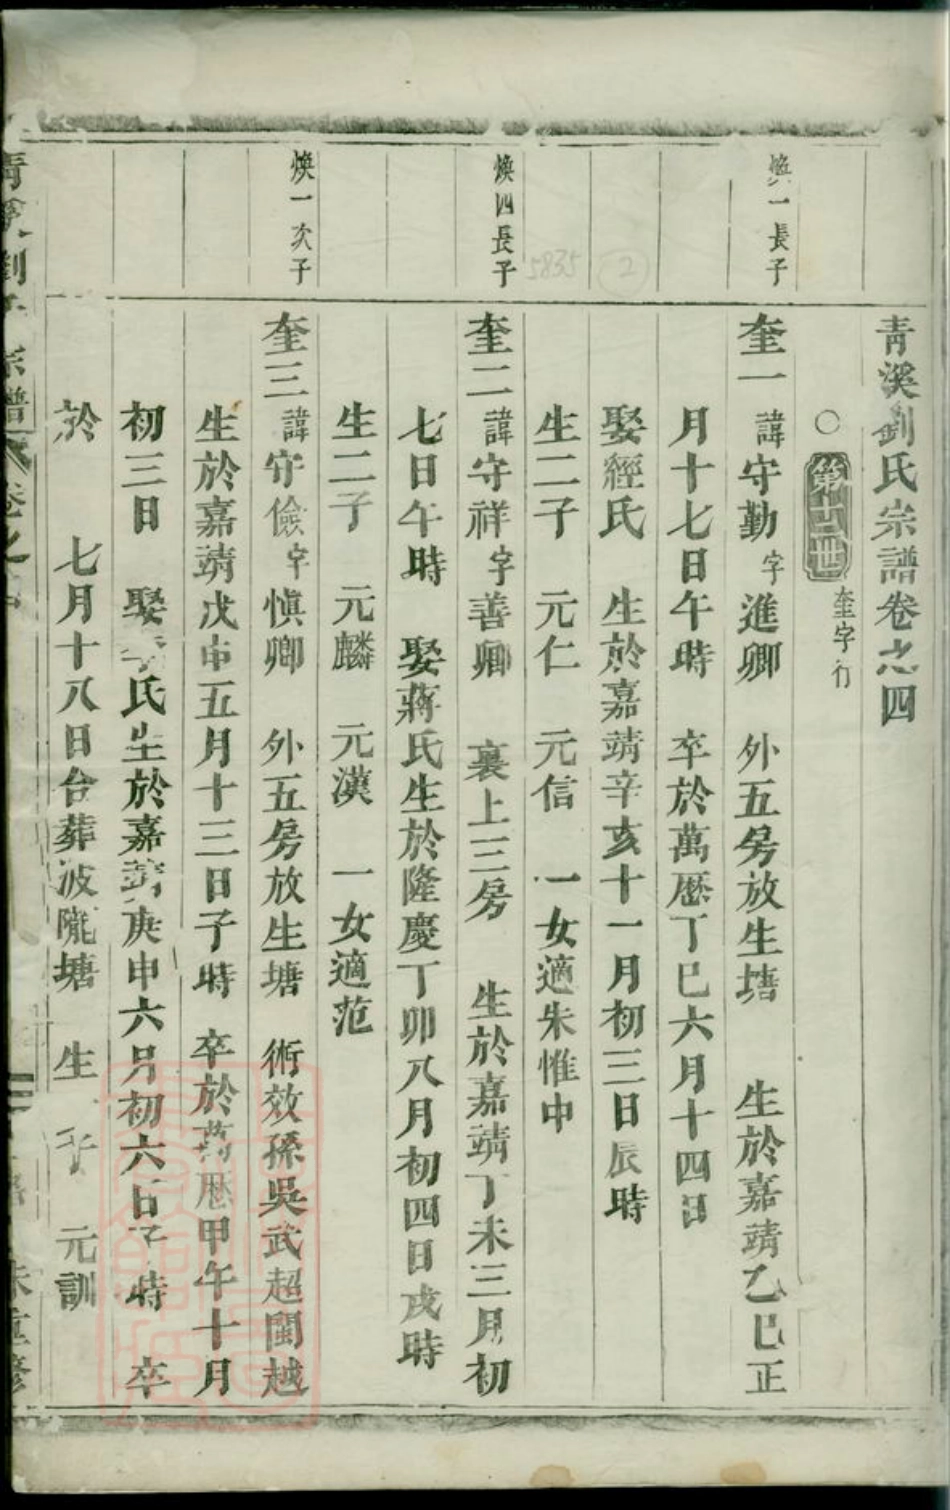 青溪劉氏宗譜卷之四
○第十六世 奎字行
煥一長子
奎一 諱守勤 字進卿 外五房放生塘 生於嘉靖乙巳正
月十七日午時 卒於萬歷丁巳六月十四日
娶經氏 生於嘉靖辛亥十一月初三日辰時
生二子 元仁 元信 一女適朱惟中
5835 2
煥四長子
奎二 諱守祥 字善卿 裏上三房 生於嘉靖丁未三月初
七日午時 娶蔣氏生於隆慶丁卯八月初四日戌時
生二子 元麟 元漢 一女適范
煥一次子
奎三 諱守儉 字慎卿 外五房放生塘 術效孫吳武超閩越
生於嘉靖戊申五月十三日子時 卒於萬歷甲午十月
初三日 娶李氏生於嘉靖庚申六月初六日子時 卒
於 七月十八日合葬波隴塘 生 子 元訓
青溪劉氏宗譜 卷之四